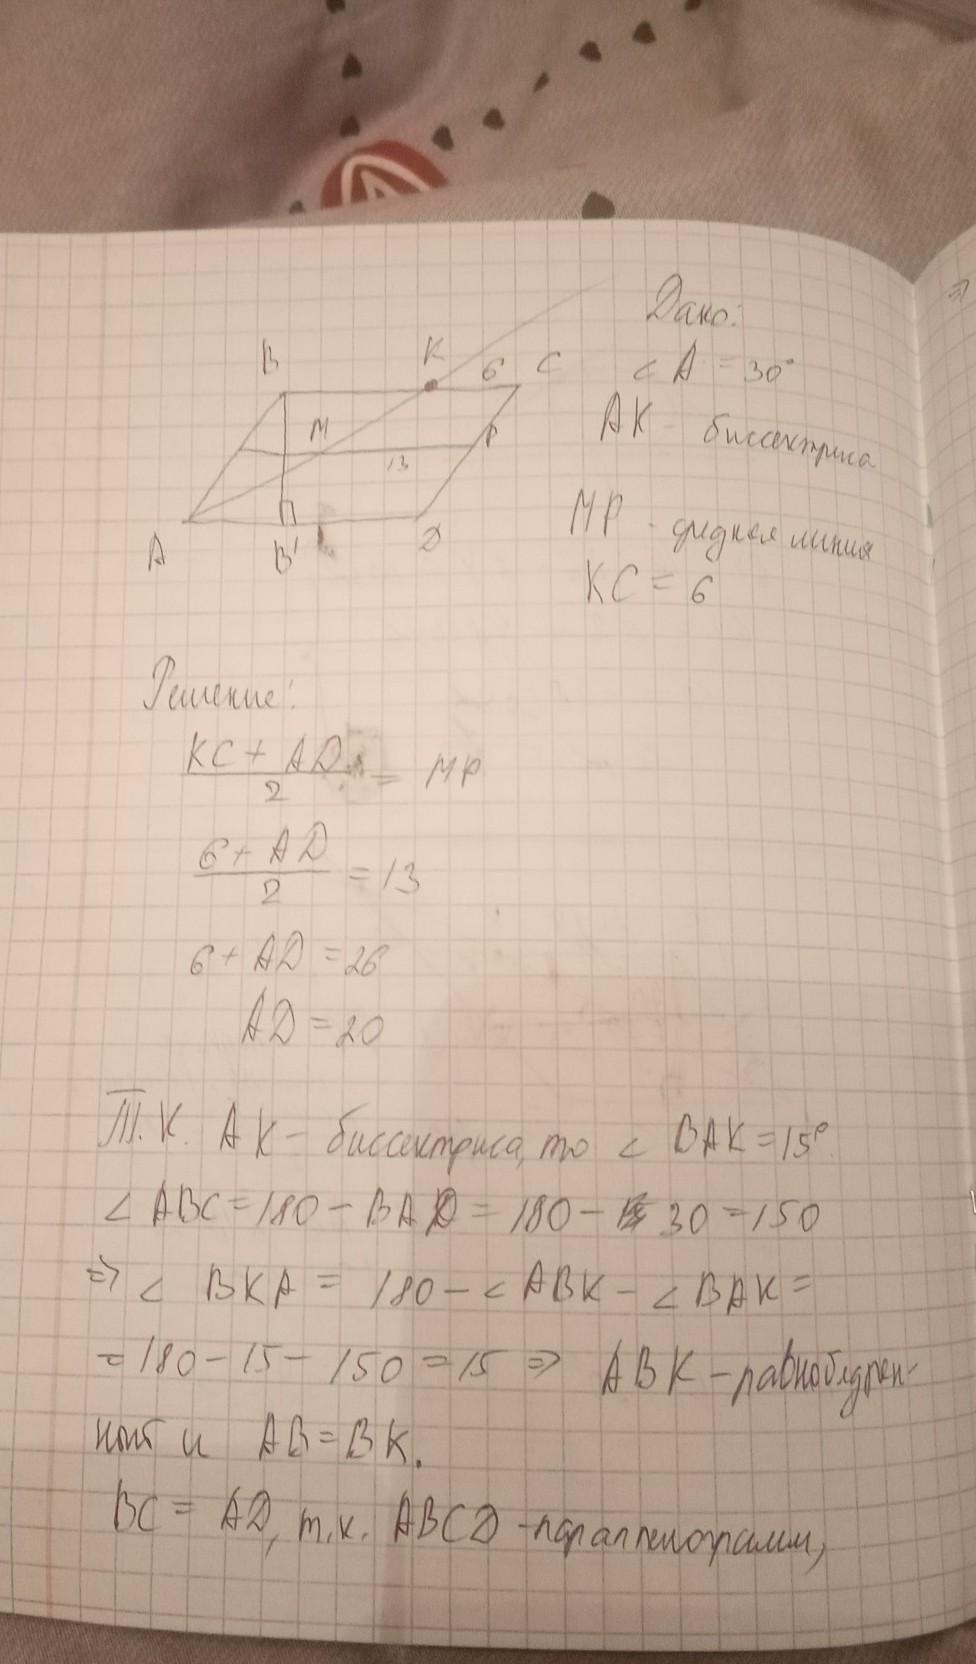 B K 6 C
M P
13
A B' D
Дано:
∠ A = 30°
AK - биссектриса
MP - средняя линия
KC = 6
Решение:
KC + AD / 2 = MP
6 + AD / 2 = 13
6 + AD = 26
AD = 20
Т.К. AK - биссектриса, то ∠ BAK = 15°.
∠ ABC = 180 - BAD = 180 - 30 = 150
=> ∠ BKA = 180 - ∠ ABK - ∠ BAK =
= 180 - 15 - 150 = 15 => ABK - равнобедрен-
ный и AB = BK.
BC = AD, т.к. ABCD - параллелограмм,
=>